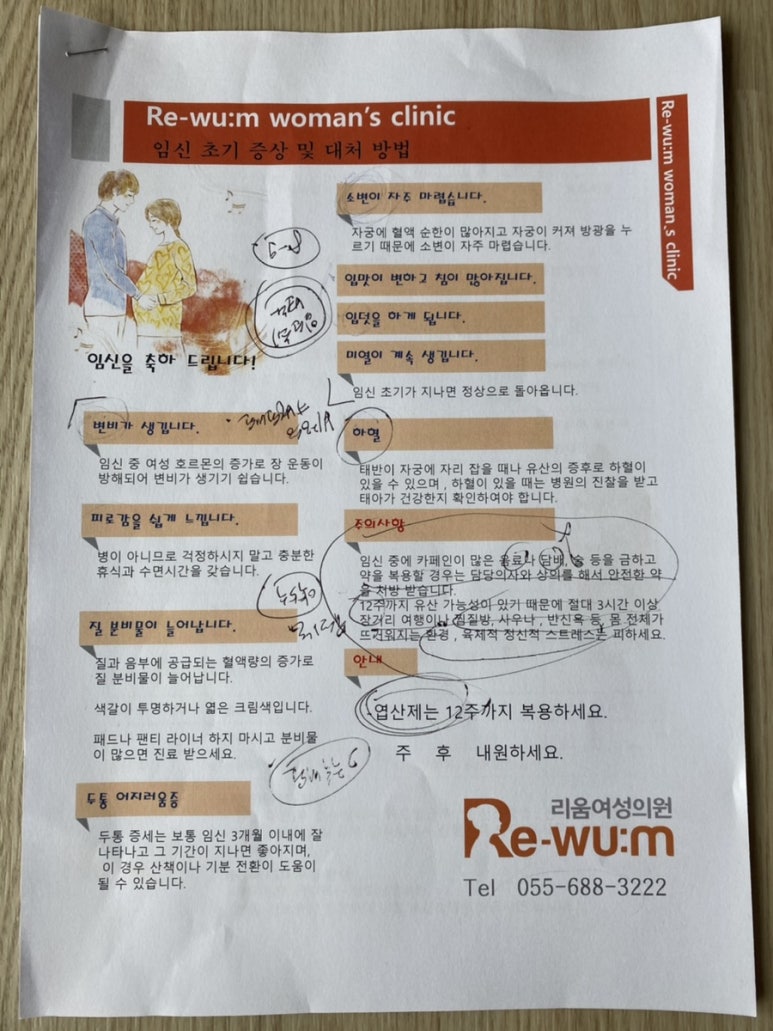 Re-wu:m woman's clinic
임신 초기 증상 및 대처 방법
Re-wu:m woman.s clinic
임신을 축하 드립니다!
5-8
변비가 생깁니다.
임신 중 여성 호르몬의 증가로 장 운동이
방해되어 변비가 생기기 쉽습니다.
피로감을 쉽게 느낍니다.
병이 아니므로 걱정하시지 말고 충분한
휴식과 수면시간을 갖습니다.
질 분비물이 늘어납니다.
질과 음부에 공급되는 혈액량의 증가로
질 분비물이 늘어납니다.
색깔이 투명하거나 엷은 크림색입니다.
패드나 팬티 라이너 하지 마시고 분비물
이 많으면 진료 받으세요.
두통 어지러움증
두통 증세는 보통 임신 3개월 이내에 잘
나타나고 그 기간이 지나면 좋아지며,
이 경우 산책이나 기분 전환이 도움이
될 수 있습니다.
소변이 자주 마렵습니다.
자궁에 혈액 순환이 많아지고 자궁이 커져 방광을 누
르기 때문에 소변이 자주 마렵습니다.
입맛이 변하고 침이 많아집니다.
입덧을 하게 됩니다.
미열이 계속 생깁니다.
임신 초기가 지나면 정상으로 돌아옵니다.
하혈
태반이 자궁에 자리 잡을 때나 유산의 증후로 하혈이
있을 수 있으며, 하혈이 있을 때는 병원의 진찰을 받고
태아가 건강한지 확인하여야 합니다.
주의사항
임신 중에 카페인이 많은 음료나 담배, 술 등을 금하고
약을 복용할 경우는 담당의사와 상의를 해서 안전한 약
을 처방 받습니다.
12주까지 유산 가능성이 있기 때문에 절대 3시간 이상
장거리 여행이나 찜질방, 사우나, 반신욕 등, 몸 전체가
뜨거워지는 환경, 육체적 정신적 스트레스는 피하세요.
안내
-엽산제는 12주까지 복용하세요.
주 후 내원하세요.
리움여성의원
Re-wu:m
Tel 055-688-3222